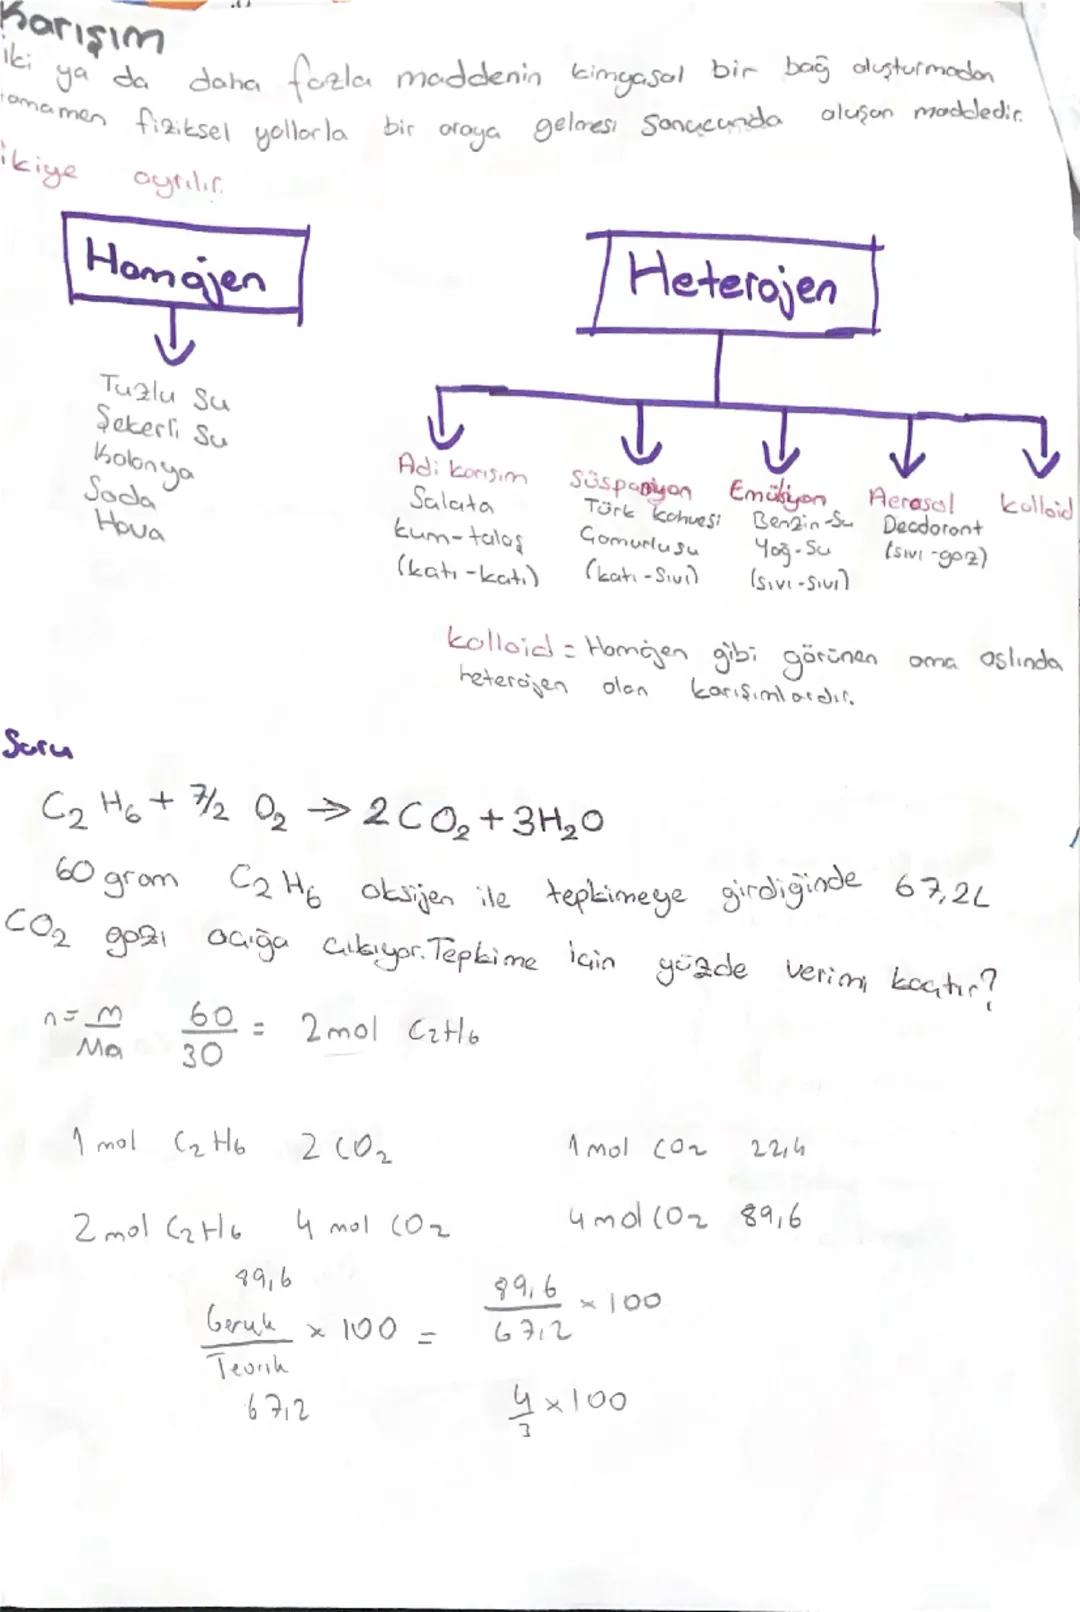 Karışım
iki ya da daha fazla maddenin kimyasal bir bağ oluşturmadan
tamamen fiziksel yollarla bir araya gelmesi sonucunda oluşan maddedir.
ikiye ayrılır.
Homojen
Heterojen
Tuzlu Su
Şekerli Su
Kolonya
Soda
Hava
Adi karışım
Salata
kum-talaş
(katı-katı)
Süspansiyon
Türk kahvesi
Çamurlu su
(katı-Sıvı)
Emülsiyon
Benzin-Su
Yağ-Su
(sıvı-sıvı)
Aerosol
Deodorant
(sıvı-gaz)
kolloid
kolloid = Homojen gibi görünen ama aslında
heterojen olan karışımlardır.
Soru
C₂H₆ + 7/2 O₂ → 2CO₂ + 3H₂O
60 gram C₂H₆ oksijen ile tepkimeye girdiğinde 67,2L
CO₂ gazı açığa çıkıyor. Tepkime için yüzde verimi kaçtır?
n = m/Ma 60/30 = 2 mol C₂H₆
1 mol C₂H₆ 2 CO₂ 1 mol CO₂ 22,4
2 mol C₂H₆ 4 mol CO₂ 4 mol CO₂ 89,6
89,6
Gerçek/Teorik × 100 = 89,6/67,2 × 100
67,2
4/3 × 100